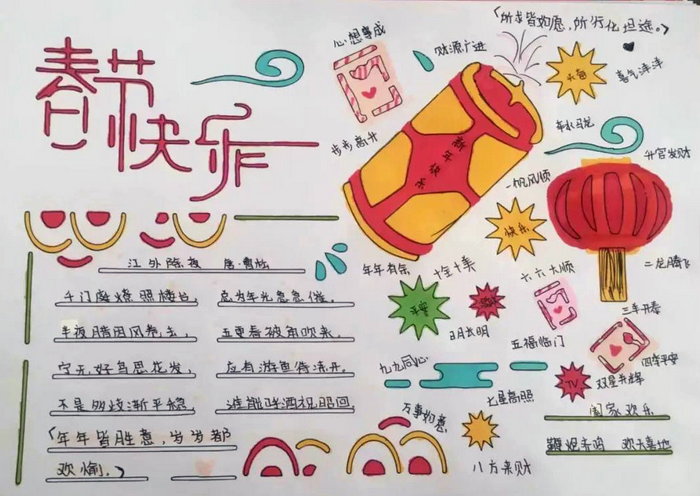 春节快乐
心想事成
财源广进
「所求皆如愿，所行化坦途。」
步步高升
新年快乐
喜气洋洋
升官发财
一帆风顺
快乐
二龙腾飞
年年有余
十全十美
六六大顺
平安
三羊开泰
五福临门
四季平安
九九同心
七星高照
双星争辉
万事如意
八方来财
阖家欢乐
欢天喜地
江外除夜 唐·曹松
千门庭燎照楼台，总为年光急急催。
半夜腊因风卷去，五更春被角吹来。
宁无好鸟思花发，应有游鱼待冻开。
不是多歧渐平稳，谁能呼酒祝昭回
「年年皆胜意，岁岁都
欢愉。」